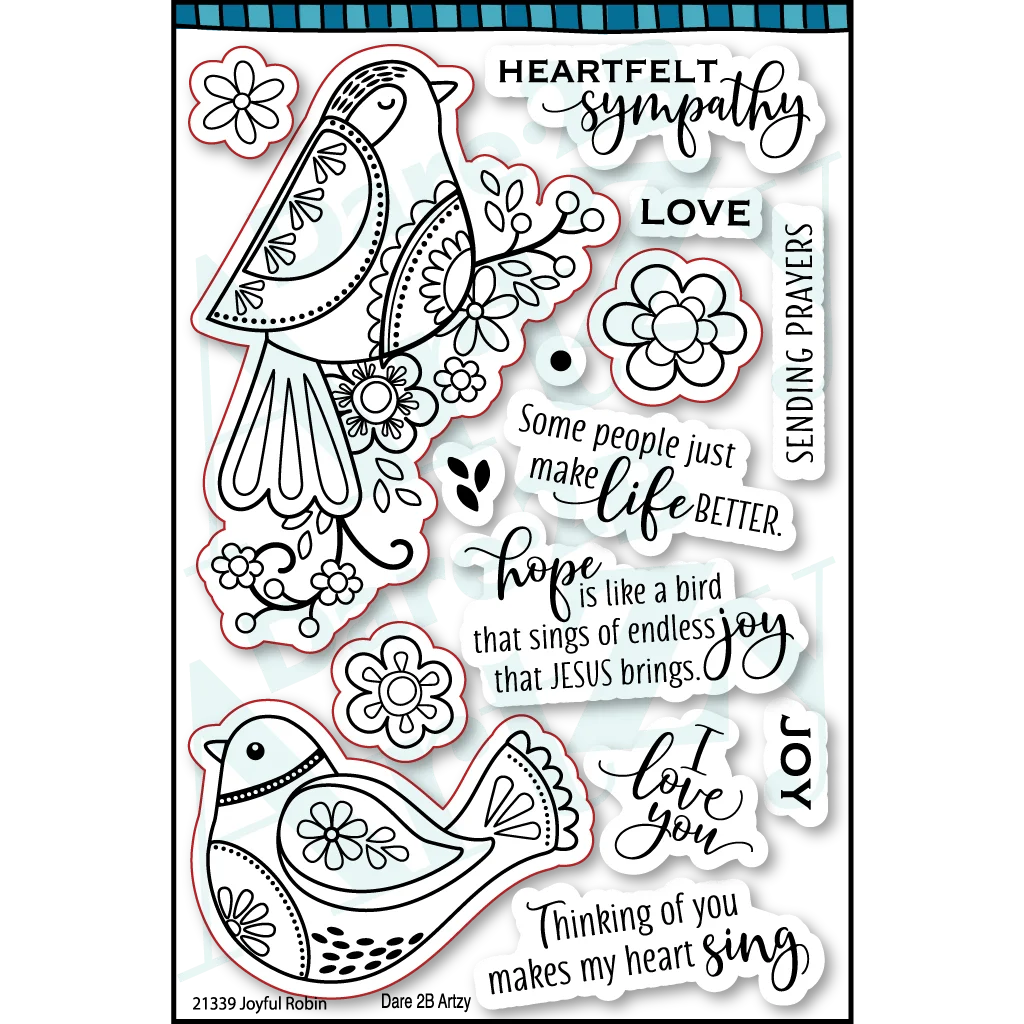 HEARTFELT
sympathy
LOVE
SENDING PRAYERS
Some people just
make life BETTER.
hope
is like a bird
that sings of endless joy
that JESUS brings.
I
love
you
JOY
Thinking of you
makes my heart sing
21339 Joyful Robin
Dare 2B Artzy